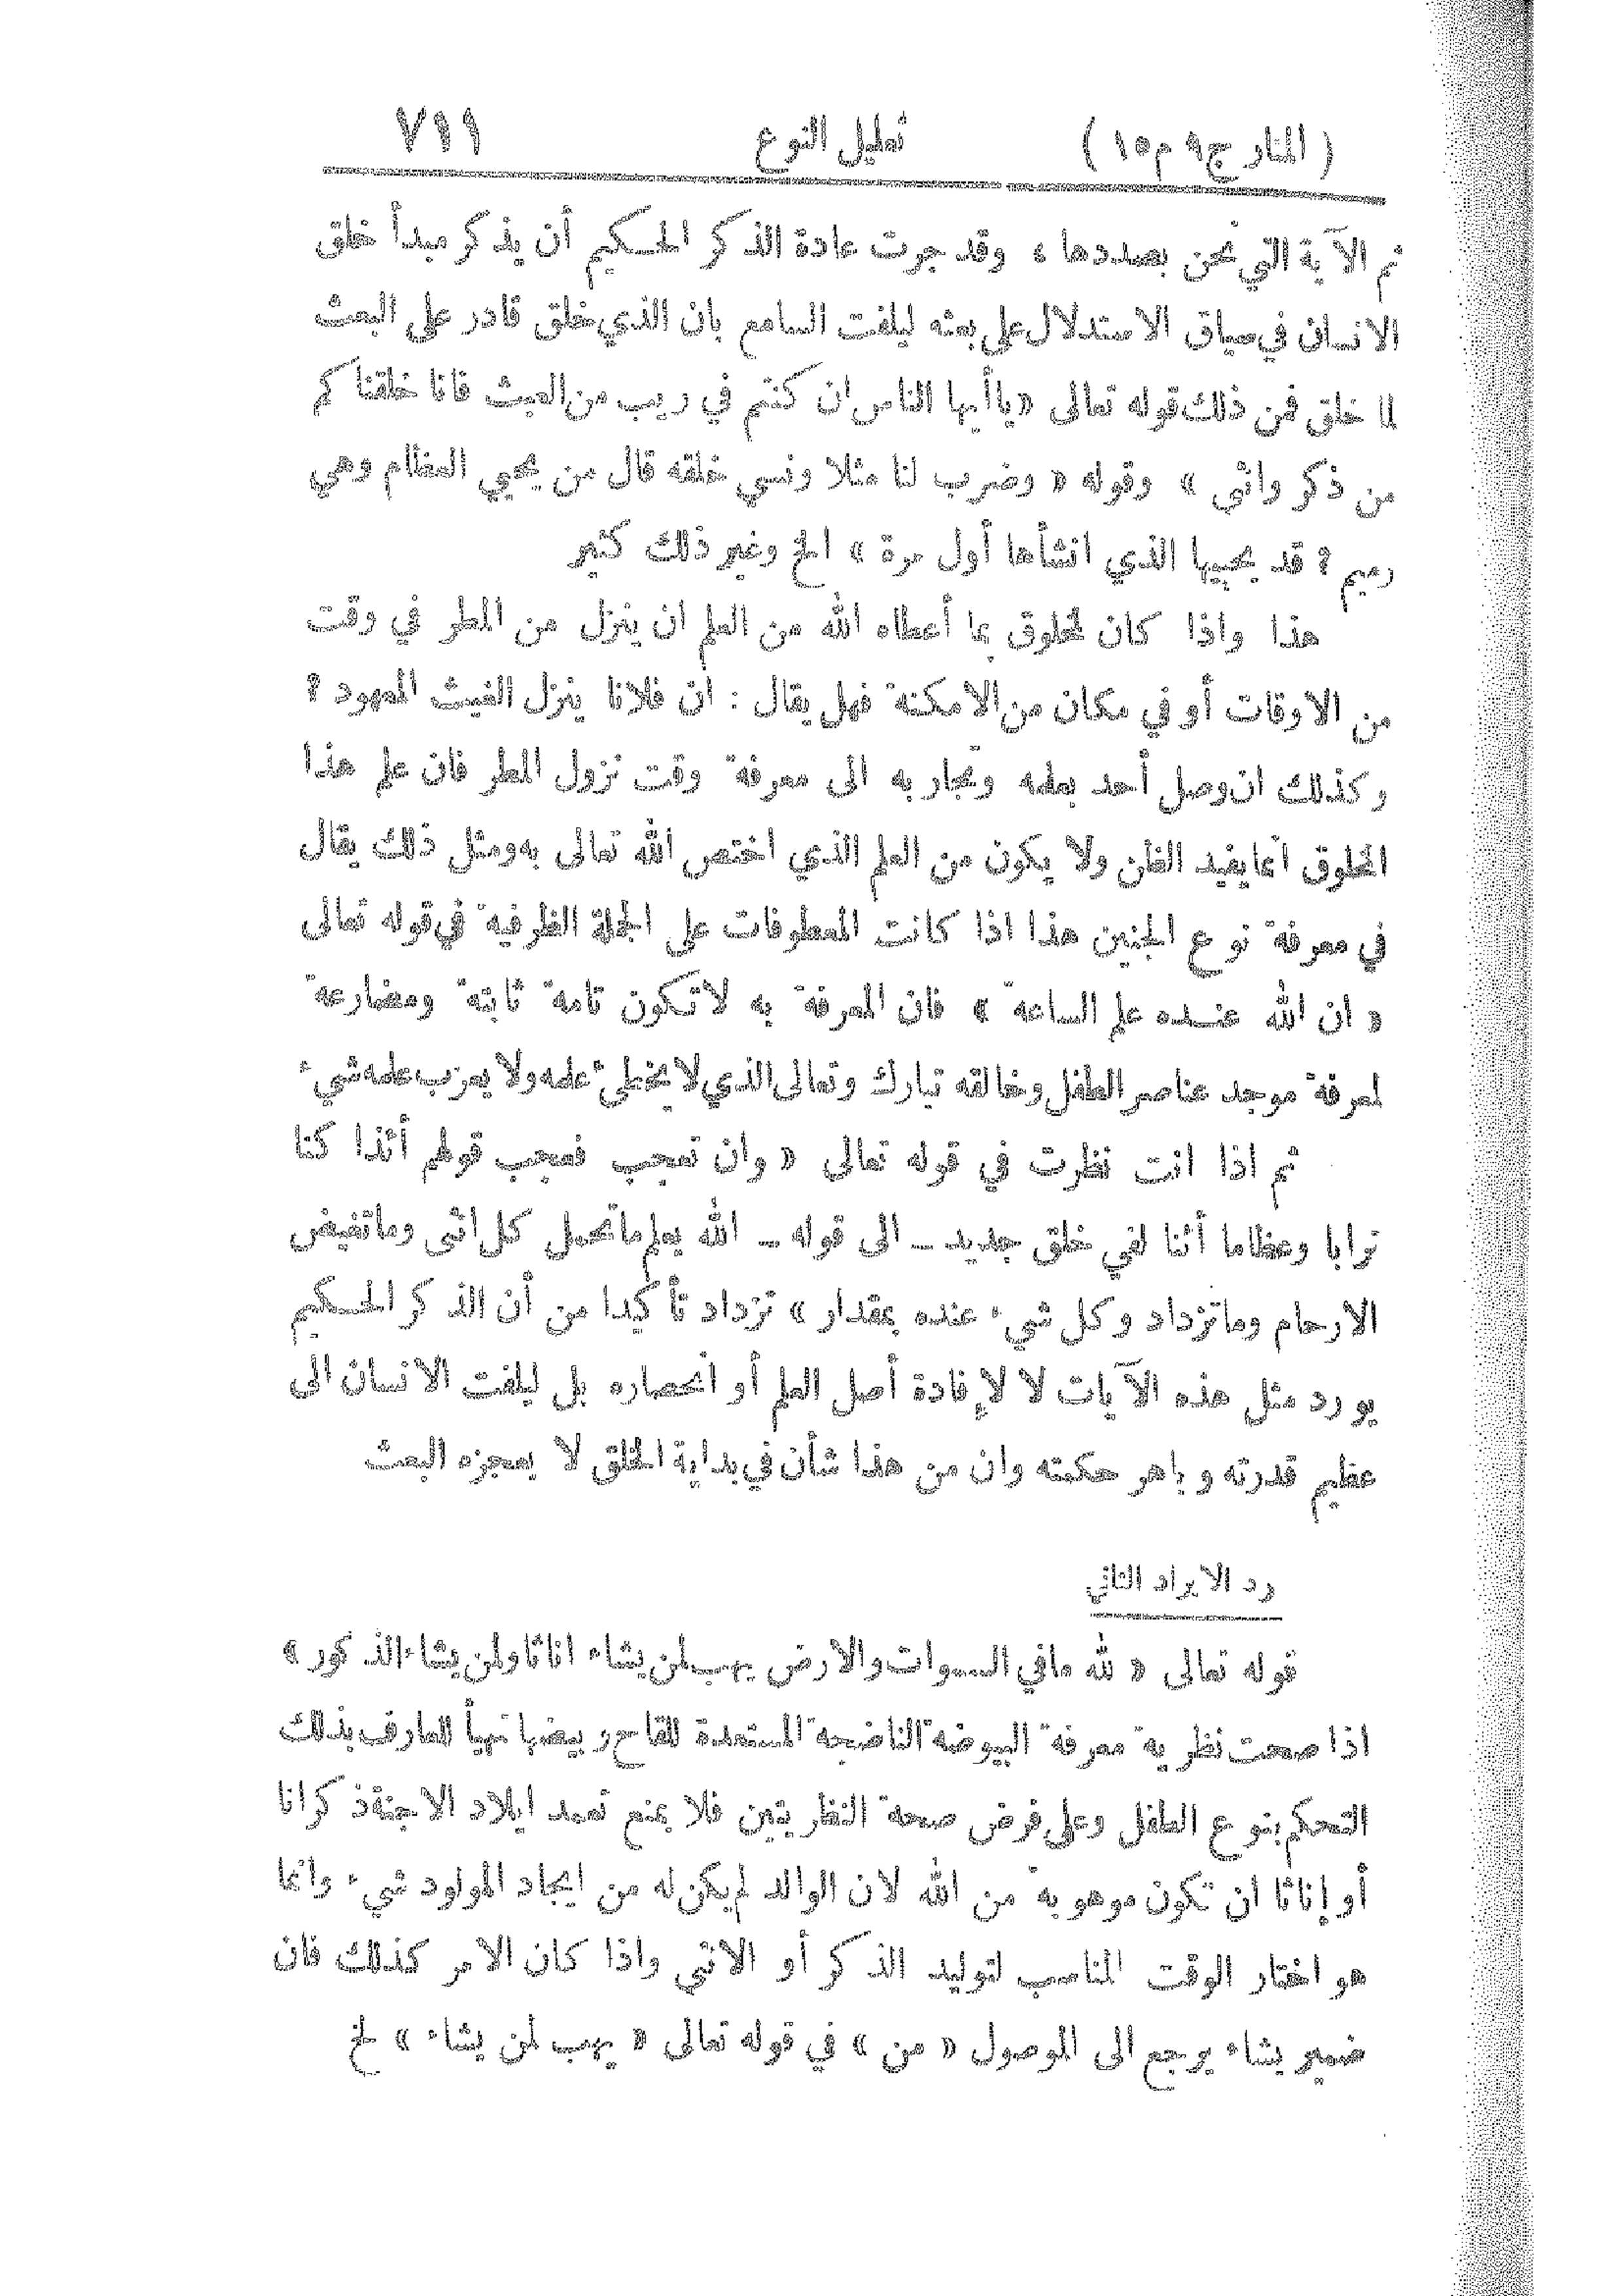 ( المنار ج ٩ م ١٥ ) تعليل النوع ٧١١
ثم الآية التي نحن بصددها ، وقد جرت عادة الذكر الحكيم أن يذكر مبدأ خلق
الانسان في سياق الاستدلال على بعثه ليلفت السامع بان الذي خلق قادر على البعث
لما خلق فمن ذلك قوله تعالى « ياأيها الناس ان كنتم في ريب من البعث فانا خلقناكم
من ذكر وانثى » وقوله « وضرب لنا مثلا ونسي خلقه قال من يحيي العظام وهي
رميم ؟ قد يحييها الذي انشأها أول مرة » الخ وغير ذلك كثير
هذا واذا كان لمخلوق بما أعطاه الله من العلم ان ينزل من المطر في وقت
من الاوقات أو في مكان من الامكنة فهل يقال : ان فلانا ينزل الغيث المعهود ؟
وكذلك ان وصل أحد بعلمه وتجاربه الى معرفة وقت نزول المطر فان علم هذا
المخلوق انما يفيد الظن ولا يكون من العلم الذي اختص الله تعالى به ومثل ذلك يقال
في معرفة نوع الجنين هذا اذا كانت المعطوفات على الجملة الظرفية في قوله تعالى
« ان الله عنده علم الساعة » فان المعرفة به لا تكون تامة ثابتة ومضارعة
لمعرفة موجد عناصر الطفل وخالقه تبارك وتعالى الذي لا يخطئ علمه ولا يعزب علمه شيء
ثم اذا انت نظرت في قوله تعالى « وان تعجب فعجب قولهم أئذا كنا
ترابا وعظاما أئنا لفي خلق جديد ــ الى قوله ــ الله يعلم ماتحمل كل انثى وماتغيض
الارحام وماتزداد وكل شيء عنده بمقدار » تزداد تأكيدا من أن الذكر الحكيم
يورد مثل هذه الآيات لا لإفادة أصل العلم أو انحصاره بل ليلفت الانسان الى
عظيم قدرته وباهر حكمته وان من هذا شأن في بداية الخلق لا يعجزه البعث
رد الايراد الثاني
قوله تعالى « لله مافي السموات والارض يهب لمن يشاء اناثا ولمن يشاء الذكور »
اذا صحت نظرية معرفة البيوضة الناضجة المستعدة للقاح وبيضها تهيأ للعارف بذلك
التحكم بنوع الطفل وعلى فرض صحة النظريتين فلا يمنع تعمد ايلاد الاجنة ذكرانا
أو إناثا ان تكون موهوبة من الله لان الوالد لم يكن له من ايجاد المولود شيء وانما
هو اختار الوقت المناسب لتوليد الذكر أو الانثى واذا كان الامر كذلك فان
ضمير يشاء يرجع الى الموصول « من » في قوله تعالى « يهب لمن يشاء » لخ